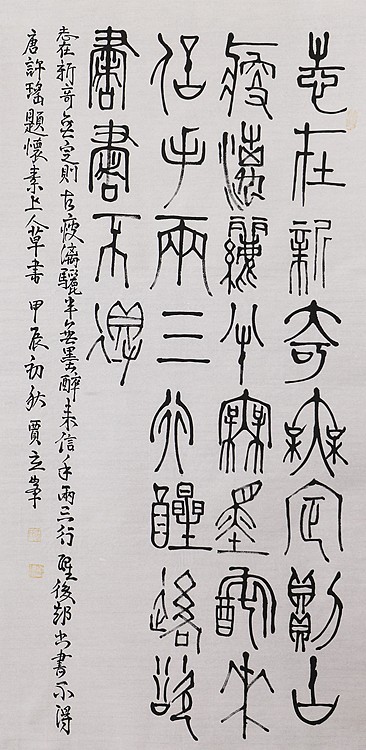 志在新奇無定則古
瘦漓驪半無墨醉来
信手兩三行醒後卻
書書不得
志在新奇無定則古瘦漓驪半無墨醉来信手兩三行醒後却书書不得
唐許瑤題懷素上人草書 甲辰初秋 賈立峯